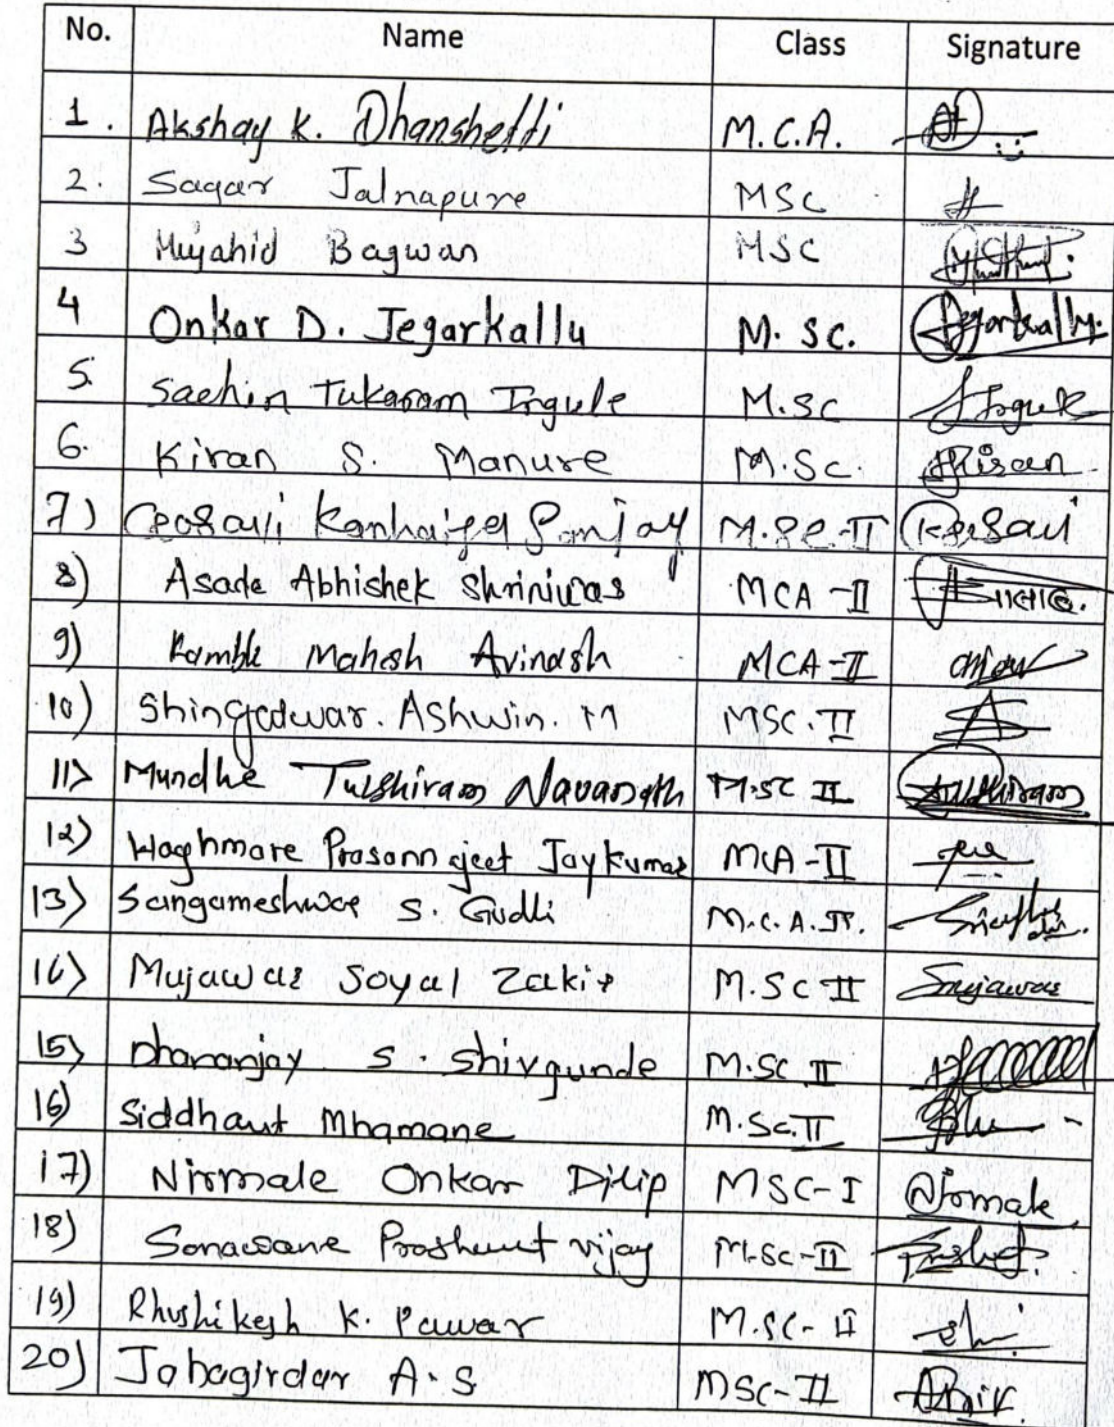 No. Name Class Signature
1. Akshay K. Dhanshetti M.C.A.
2. Sagar Jalnapure MSC
3 Mujahid Bagwan MSC
4 Onkar D. Jegarkallu M. SC. Jegarkallu.
5. Sachin Tukaram Ingule M.SC Ingule
6. Kiran S. Manure M.SC. Kiran
7) Gosavi Kanhaiya Sanjay M.SC-II Gosavi
8) Asade Abhishek Shriniwas MCA-II
9) Kamble Mahesh Avinash MCA-II
10) Shingadwar. Ashwin. M MSC-II
11) Mundhe Tulshiram Navanath M.SC II Tulshiram
12) Waghmare Prasannajeet Jaykumar MCA-II
13) Sangameshwar S. Gudli M.C.A.II.
14) Mujawar Soyal Zakir M.SC-II Smujawar
15) Dhananjay S. Shivgunde M.SC II
16) Siddhant Mhamane M.Sc.II
17) Nirmale Onkar Dilip MSC-I Nirmale
18) Sonawane Prashant vijay M.SC-II
19) Rhushikesh K. Pawar M.SC-II
20) Jahagirdar A.S MSC-II